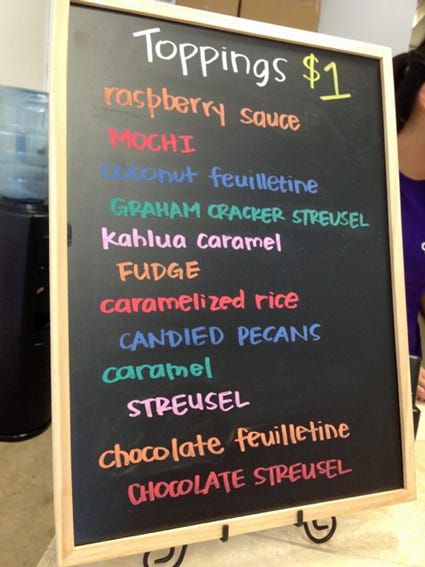 Toppings $1
raspberry sauce
MOCHI
coconut feuilletine
GRAHAM CRACKER STREUSEL
kahlua caramel
FUDGE
caramelized rice
CANDIED PECANS
caramel
STREUSEL
chocolate feuilletine
CHOCOLATE STREUSEL